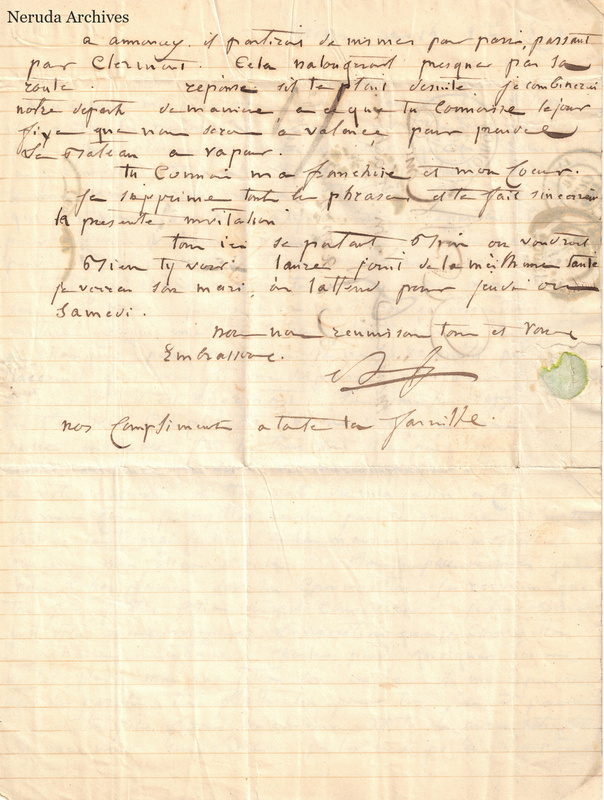 Neruda Archives
a annonay. il partirais de mismes par paris, passant
par Clermont. Cela nalongerait presque pas sa
route. réponse sil te plait desuite. Je combinerai
notre depart de maniere, a ce que tu Connaisse le jour
fixe que nou seron a valence pour prendre
Le Bateau a vapeur.
tu Connai ma franchise et mon Coeur.
Je supprime toute le phrases et te fait sincerem
la presente invitation
tou ici se portent Bien on voudrait
Bien ty voir. laure jouit de la meilleure Santé
je verrai son mari, on lattend pour jeudi ou
Samedi.
nou nou reunisson tous et vous
Embrassons.
nos Compliments a toute ta famille.